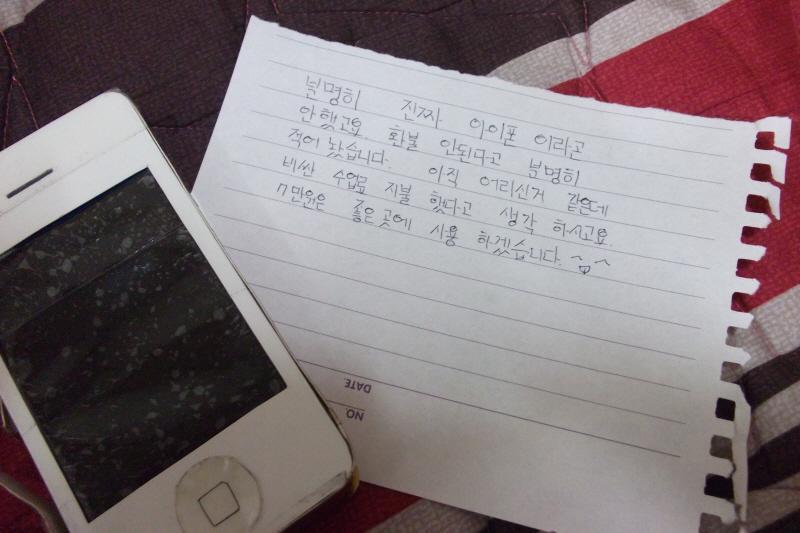 분명히 진짜 아이폰 이라곤
안했고요. 환불 안된다고 분명히
적어 놨습니다. 아직 어리신거 같은데
비싼 수업료 지불 했다고 생각 하시고요.
7만원은 좋은곳에 사용 하겠습니다. ^ㅁ^
DATE
NO.